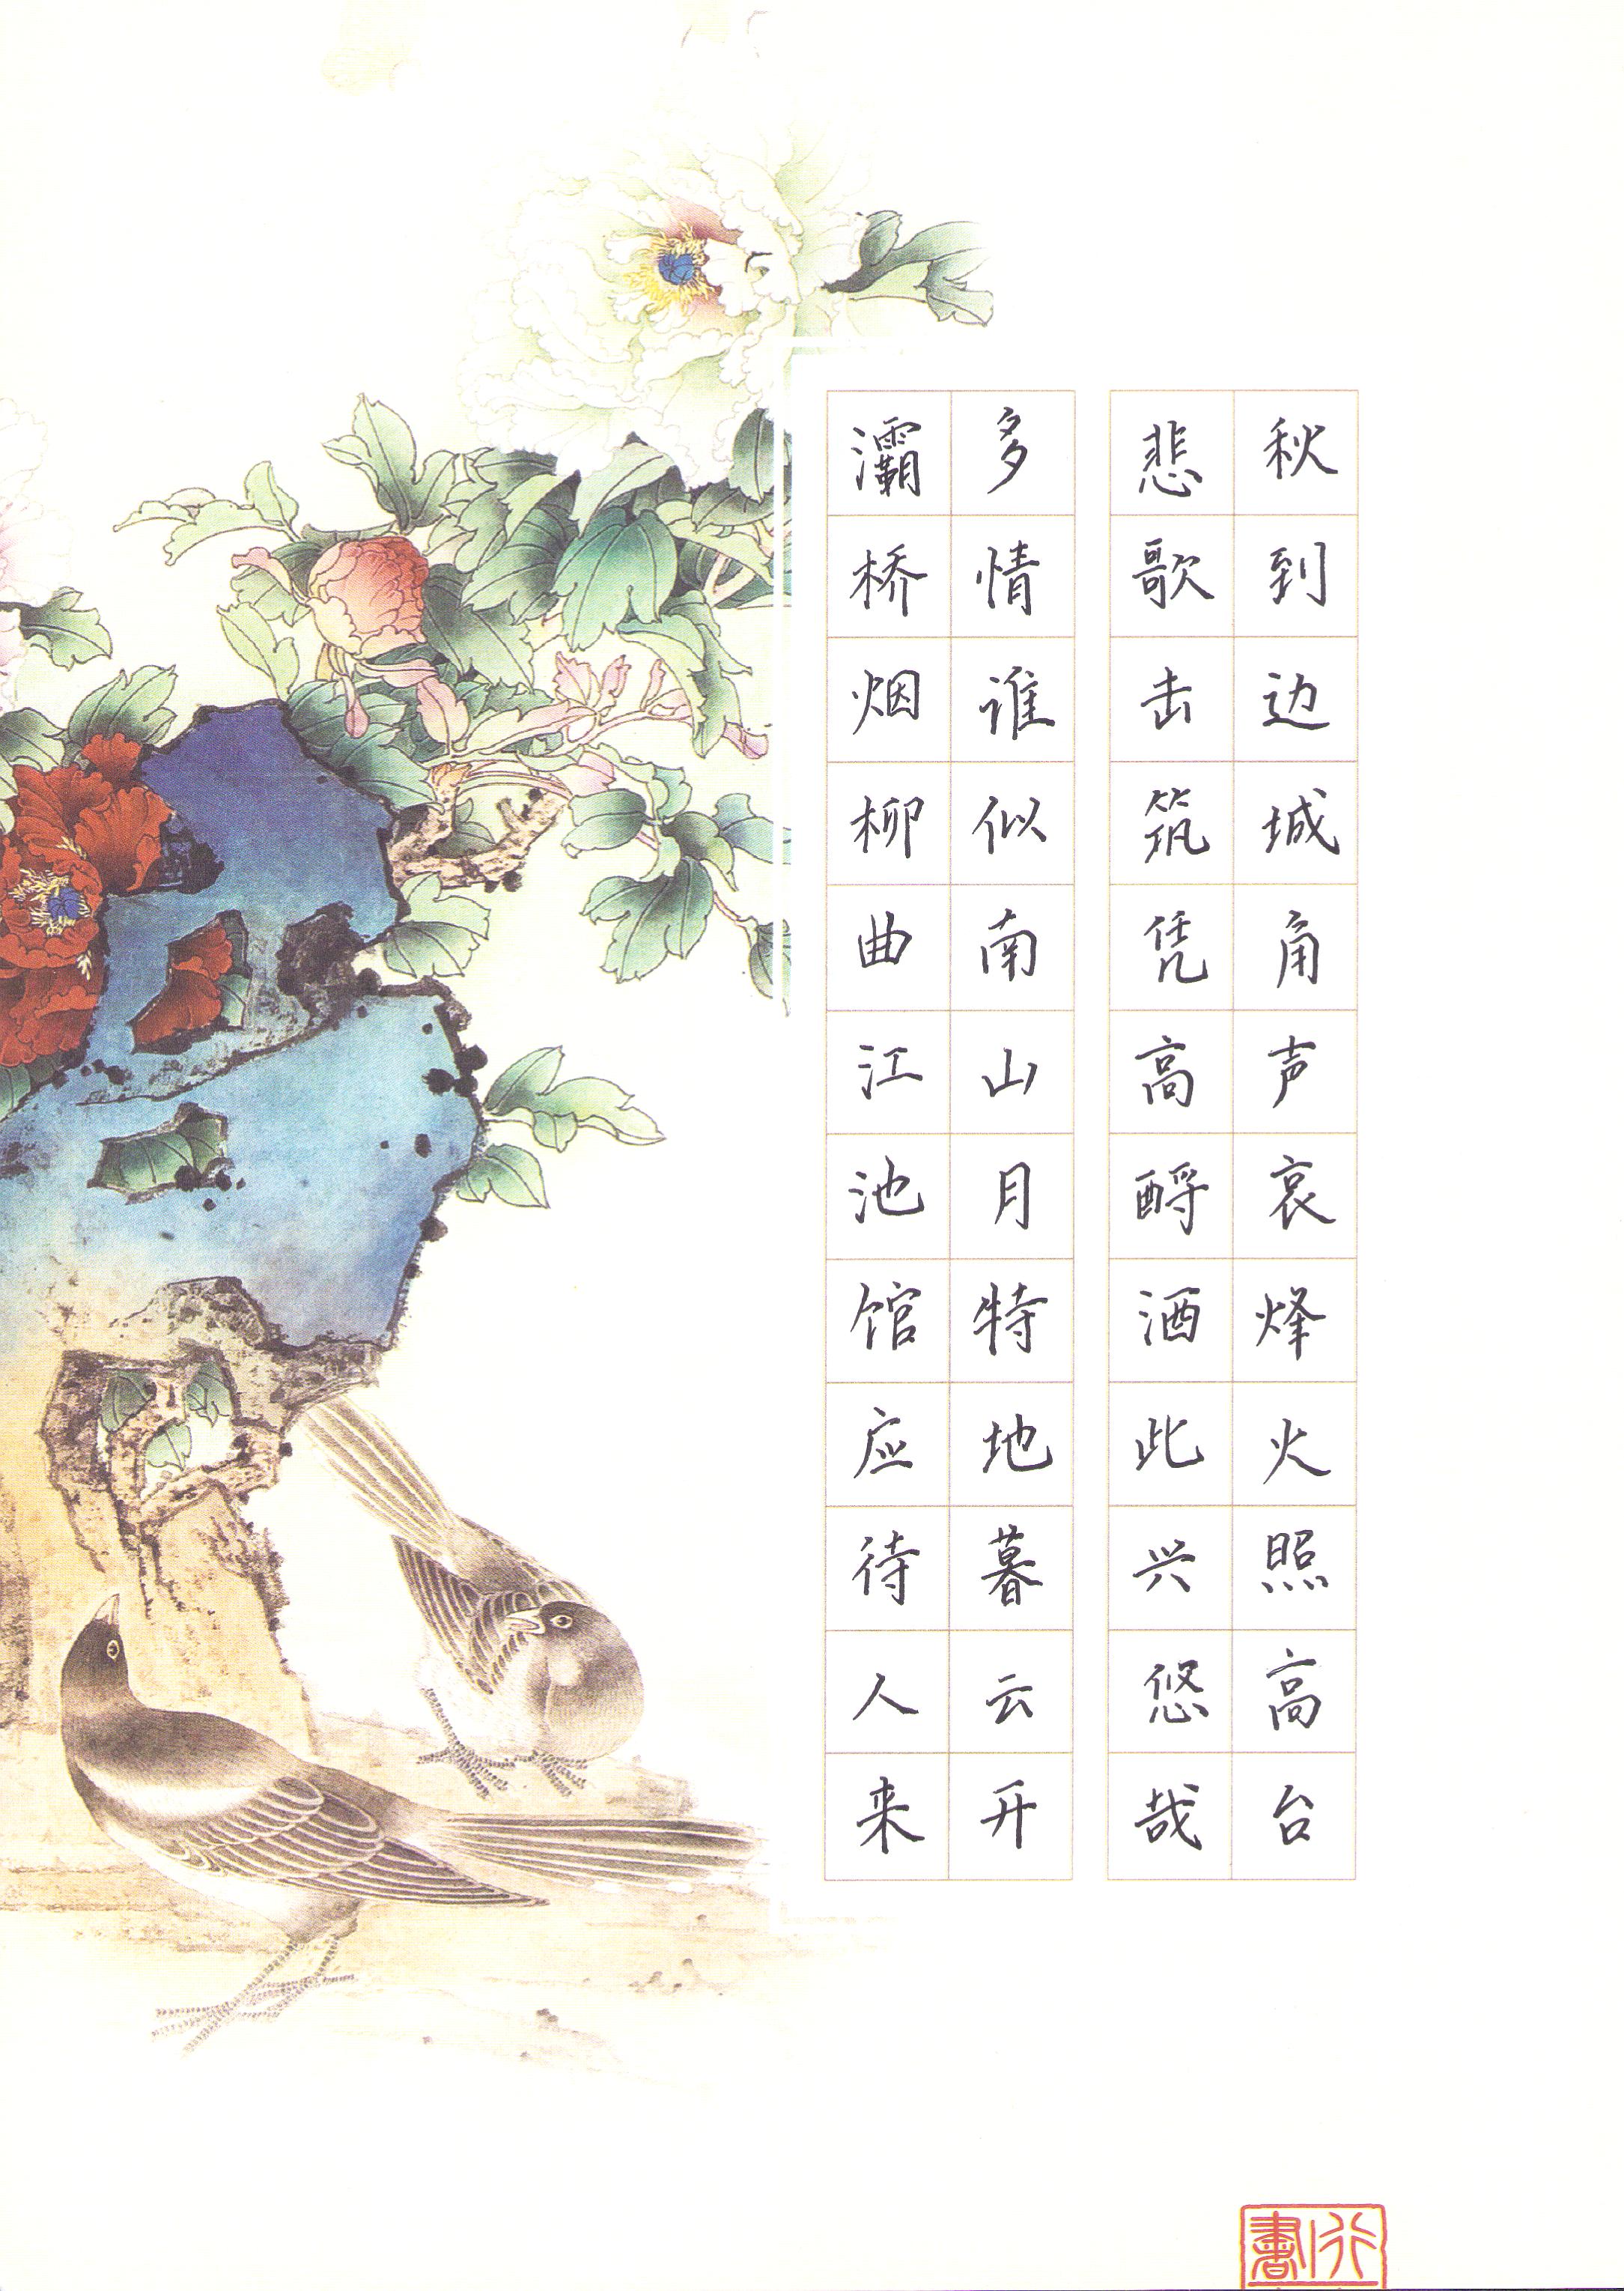 秋到边城角声哀烽火照高台
悲歌击筑凭高酹酒此兴悠哉
多情谁似南山月特地暮云开
灞桥烟柳曲江池馆应待人来
行書